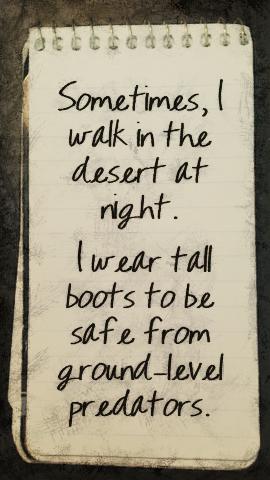 Sometimes, I
walk in the
desert at
night.
I wear tall
boots to be
safe from
ground-level
predators.